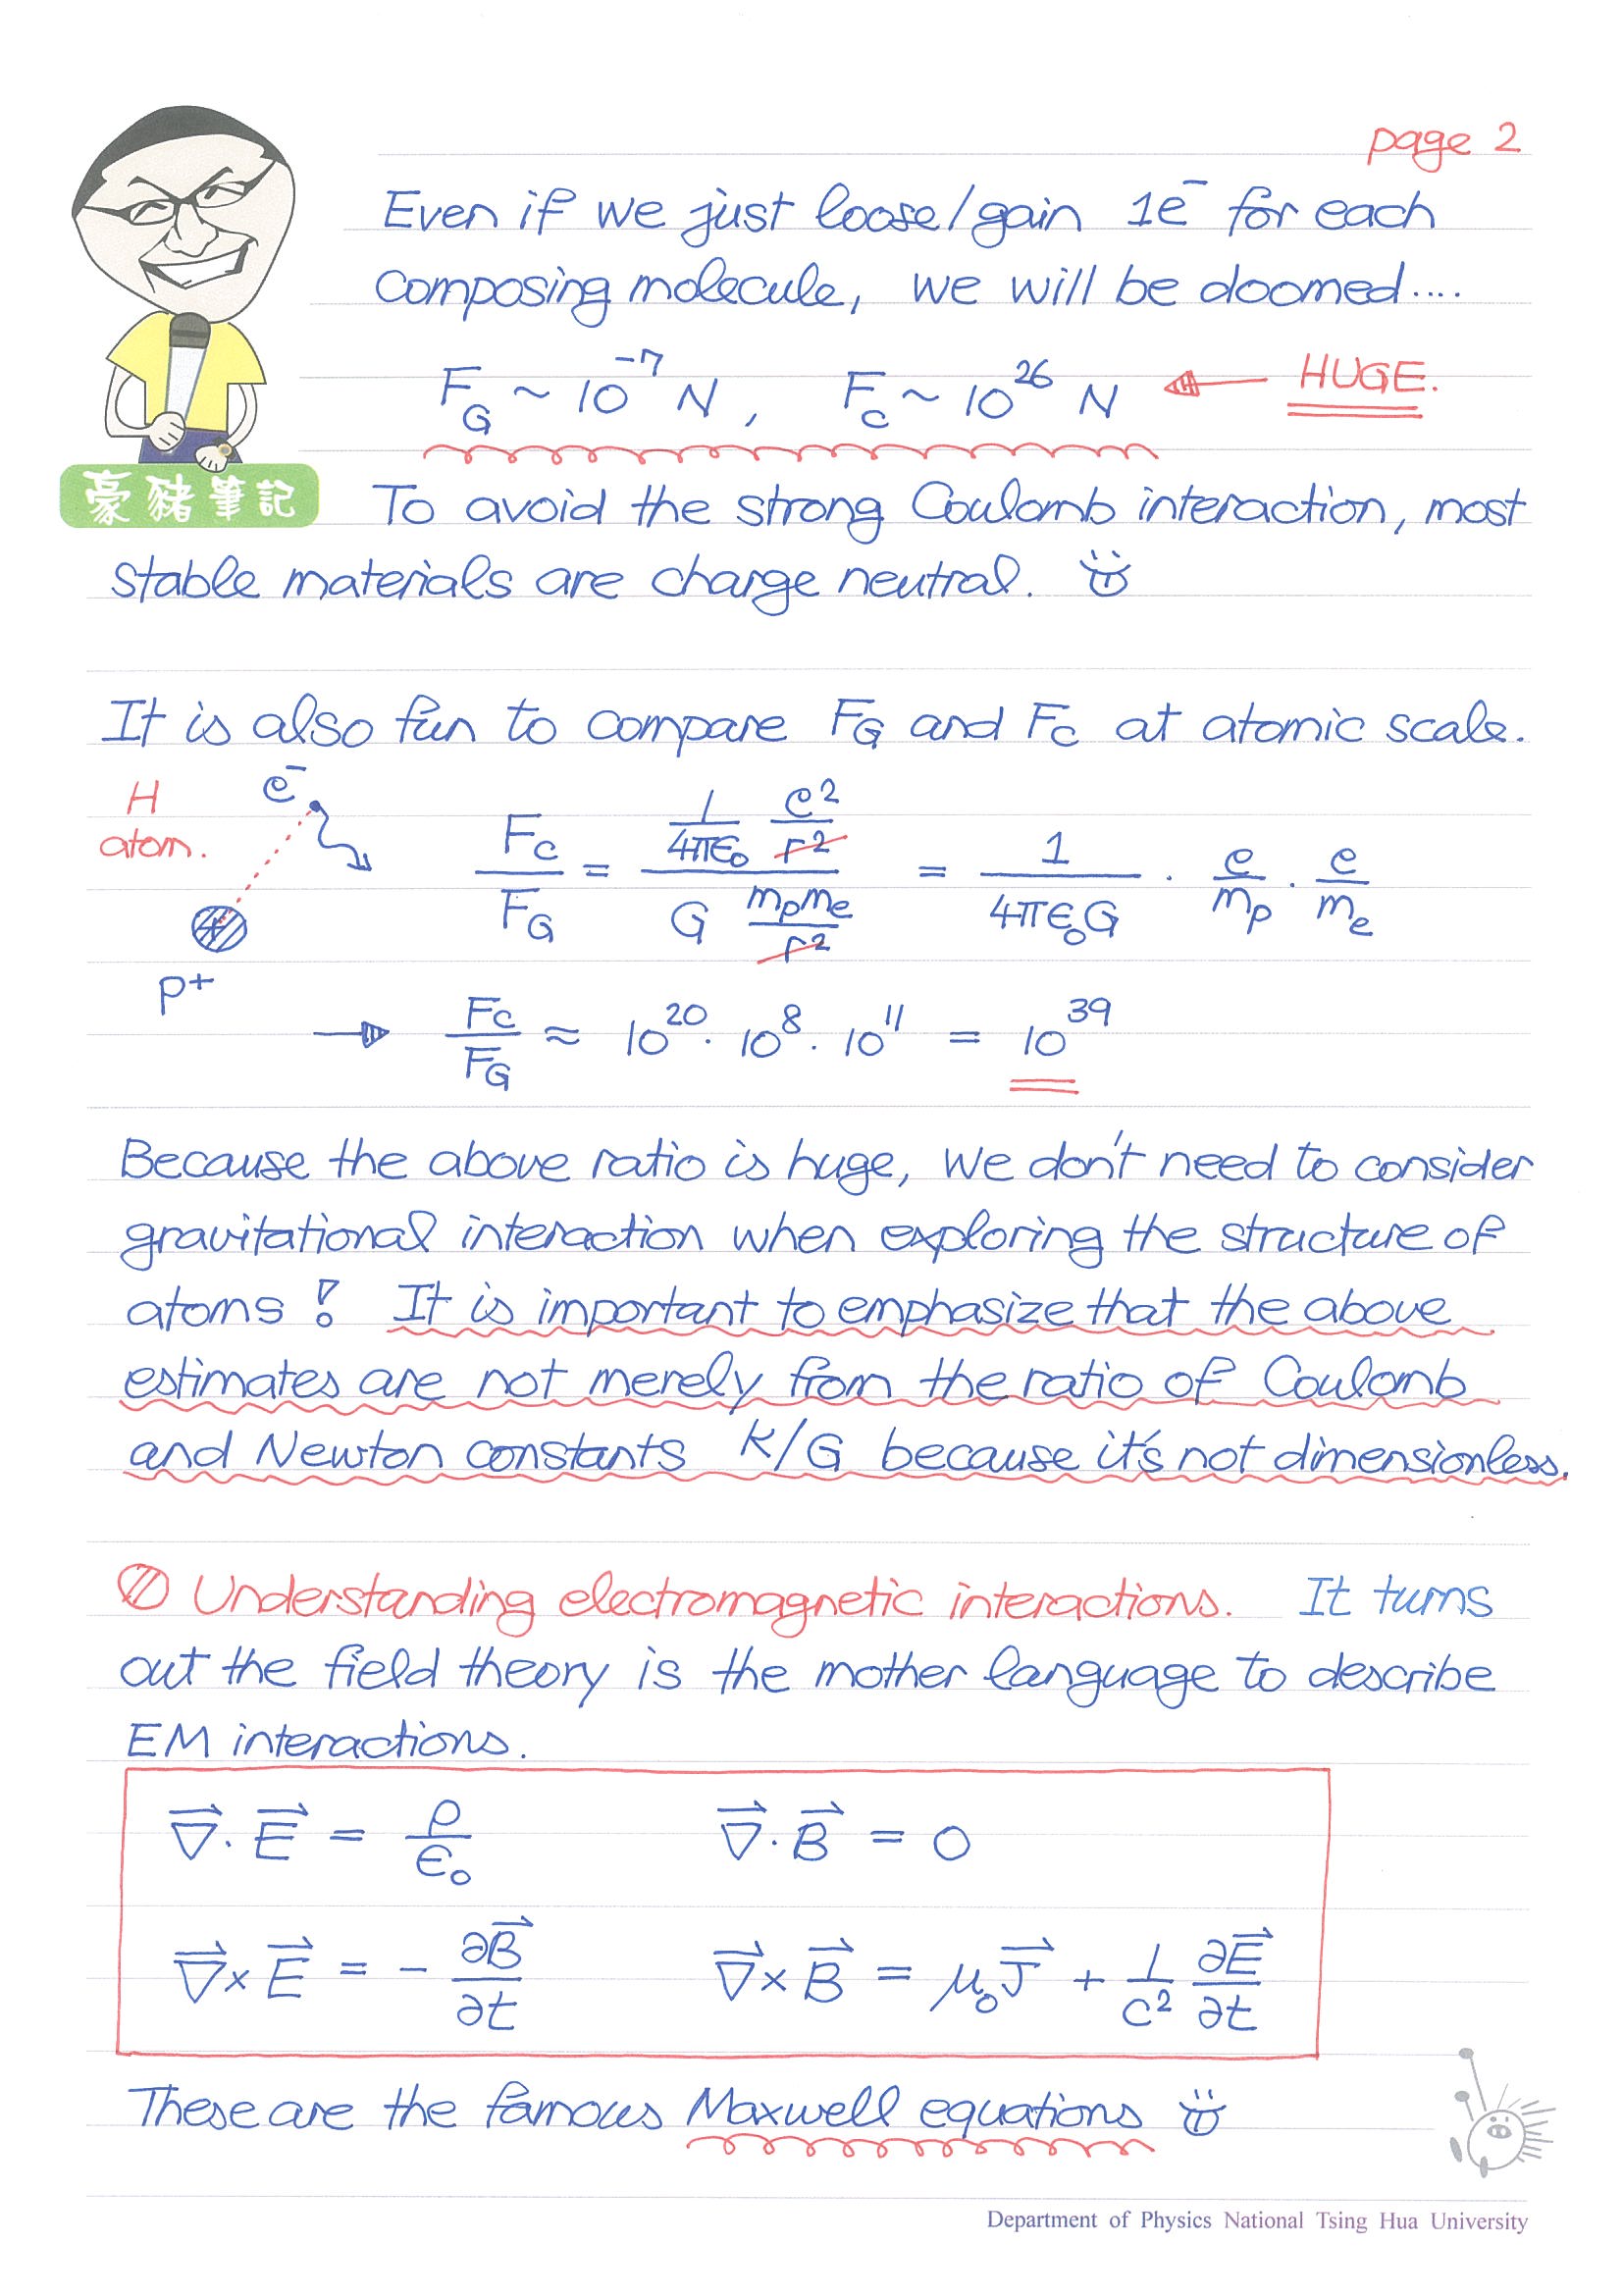 page 2
Even if we just loose/gain 1e⁻ for each
composing molecule, we will be doomed....
F_G ~ 10⁻⁷ N, F_c ~ 10²⁶ N ← HUGE.
豪豬筆記
To avoid the strong Coulomb interaction, most
stable materials are charge neutral.
It is also fun to compare F_G and F_c at atomic scale.
H atom. e⁻ p⁺
F_c/F_G = (1/4πε₀ e²/r²)/(G m_p m_e/r²) = 1/(4πε₀G) · e/m_p · e/m_e
→ F_c/F_G ≈ 10²⁰ · 10⁸ · 10¹¹ = 10³⁹
Because the above ratio is huge, we don't need to consider
gravitational interaction when exploring the structure of
atoms! It is important to emphasize that the above
estimates are not merely from the ratio of Coulomb
and Newton constants K/G because it's not dimensionless.
Understanding electromagnetic interactions. It turns
out the field theory is the mother language to describe
EM interactions.
∇⃗ · E⃗ = ρ/ε₀ ∇⃗ · B⃗ = 0
∇⃗ × E⃗ = − ∂B⃗/∂t ∇⃗ × B⃗ = μ₀J⃗ + 1/c² ∂E⃗/∂t
These are the famous Maxwell equations
Department of Physics National Tsing Hua University